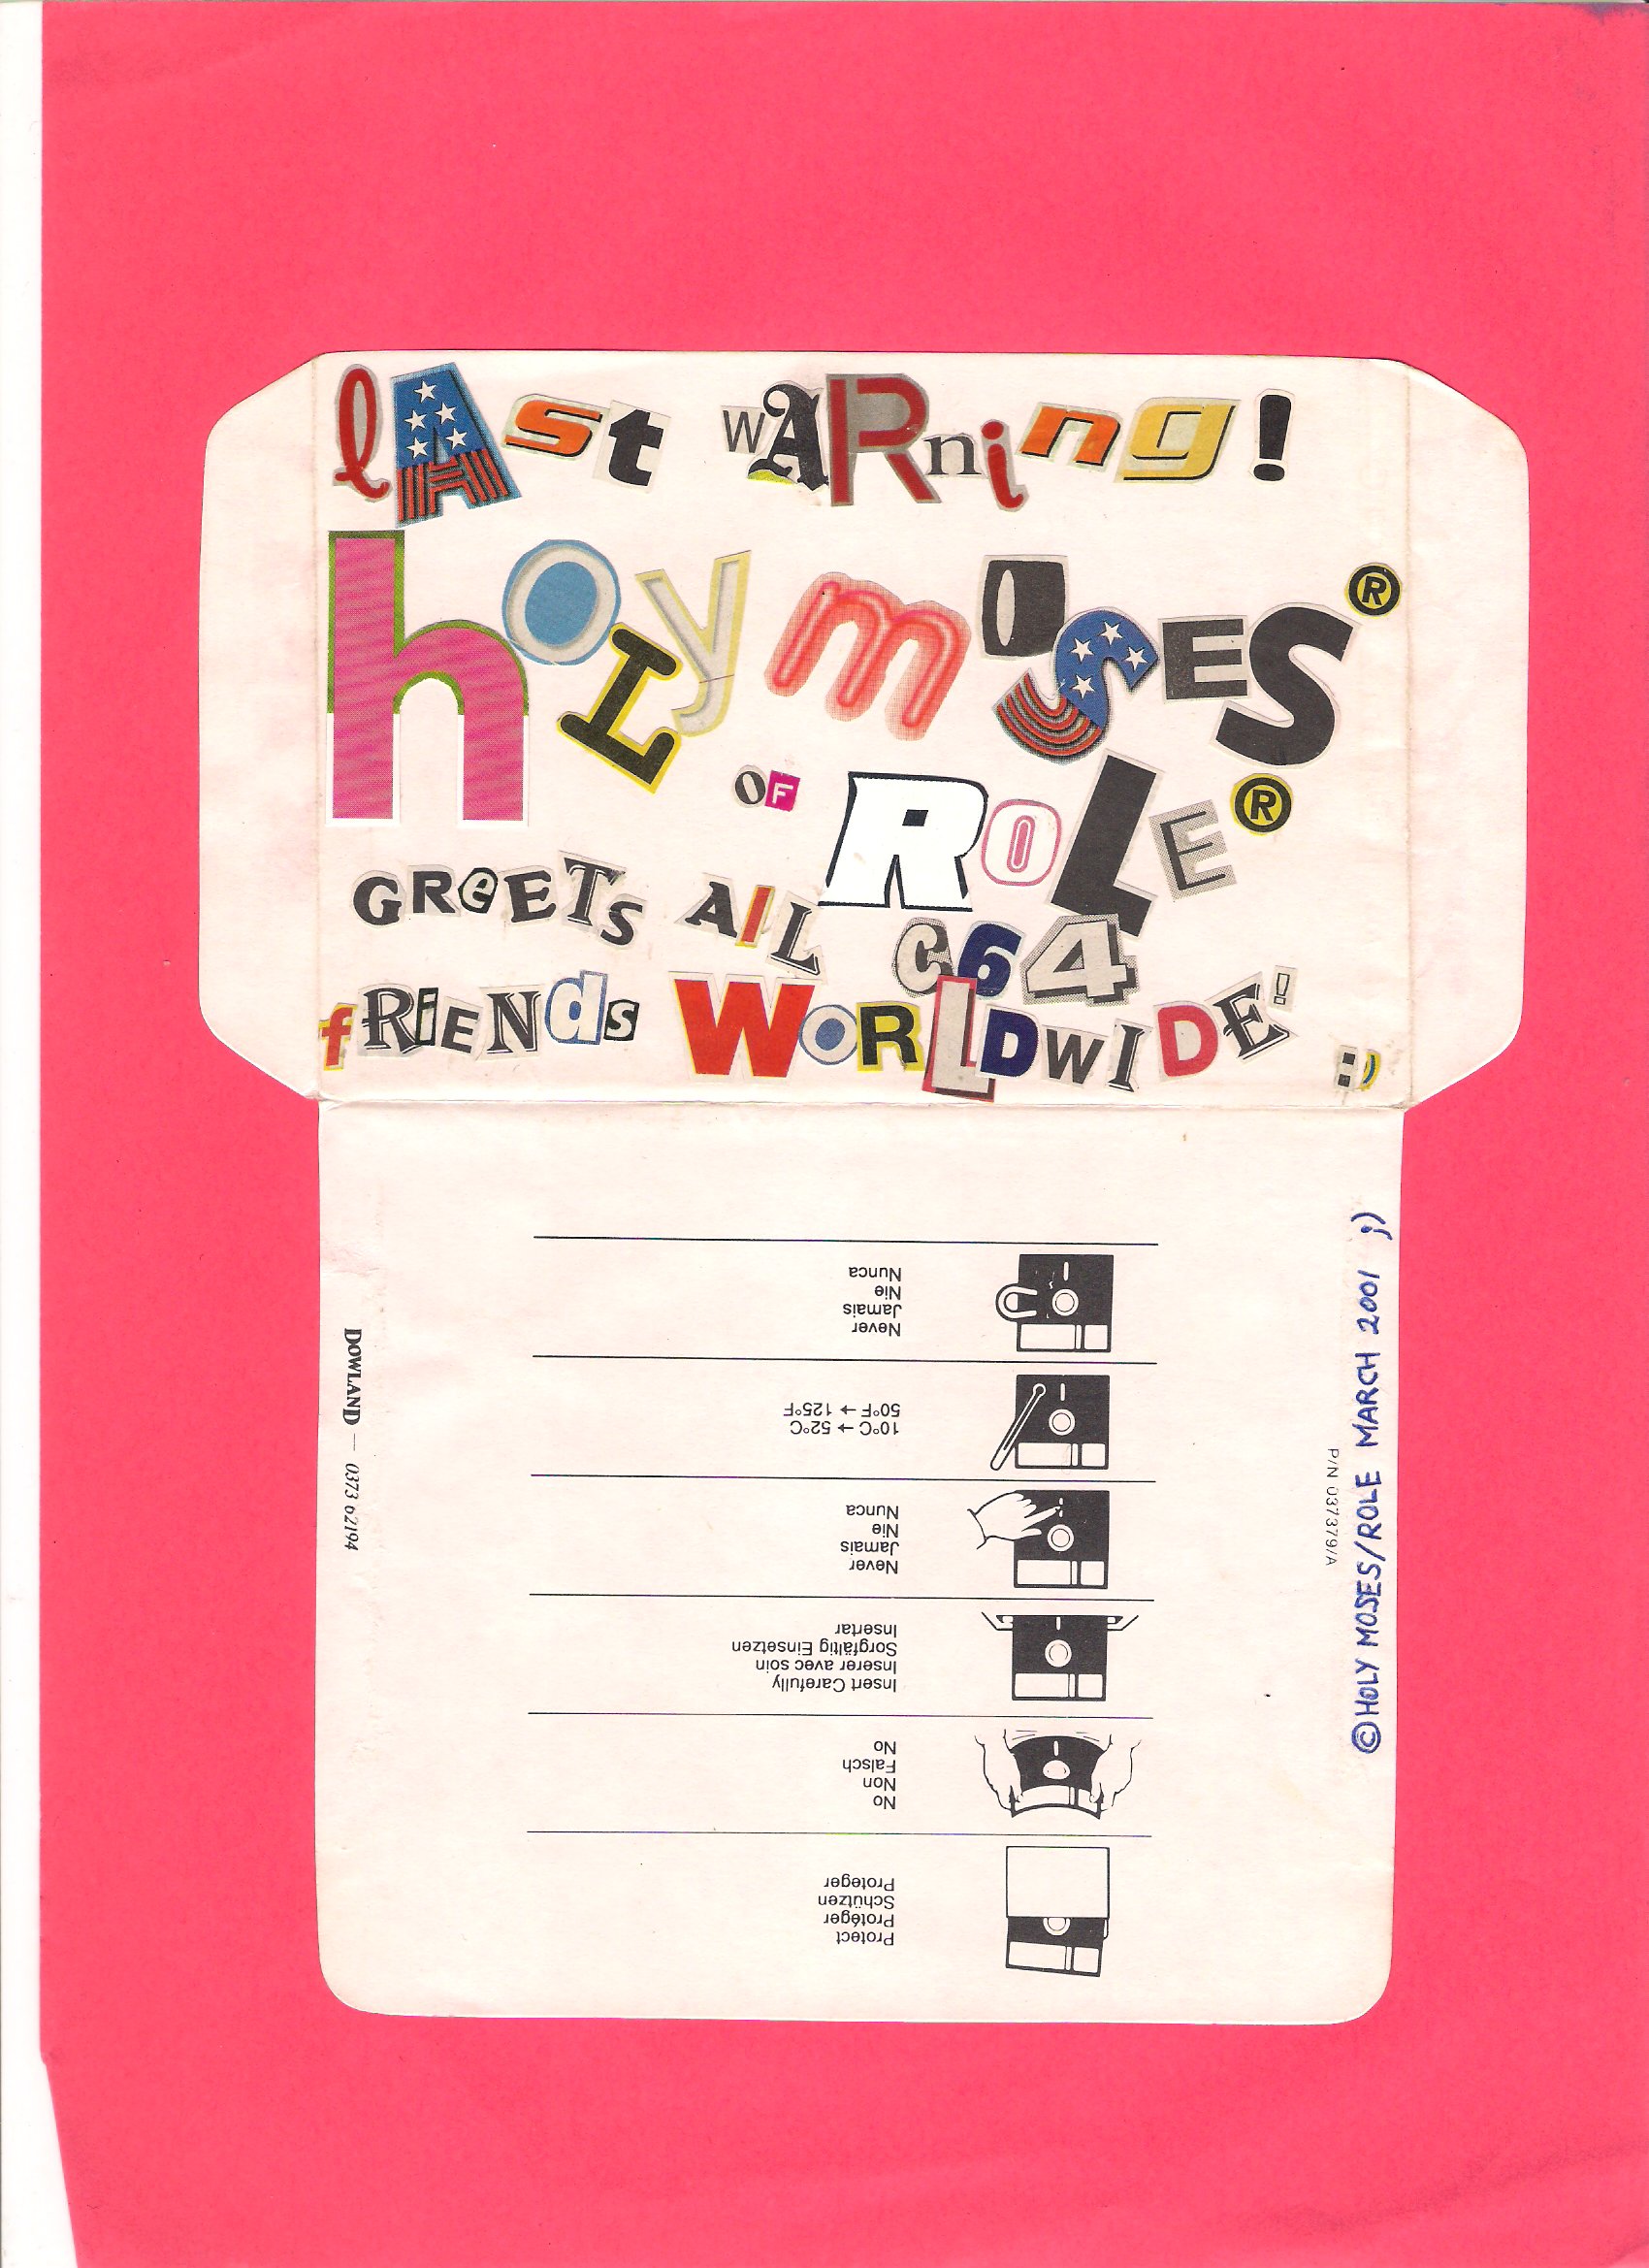 lAst wARning!
hOLy mOSES®
OF ROLE®
GReETS AlL C64
fRiENds WORLDWIDE! :)
Protect
Protéger
Schützen
Proteger
No
Non
Falsch
No
Insert Carefully
Inserer avec soin
Sorgfältig Einsetzen
Insertar
Never
Jamais
Nie
Nunca
10°C → 52°C
50°F → 125°F
Never
Jamais
Nie
Nunca
DOWLAND — 0373 62194
P/N 037379/A
©HOLY MOSES/ROLE MARCH 2001 ;)